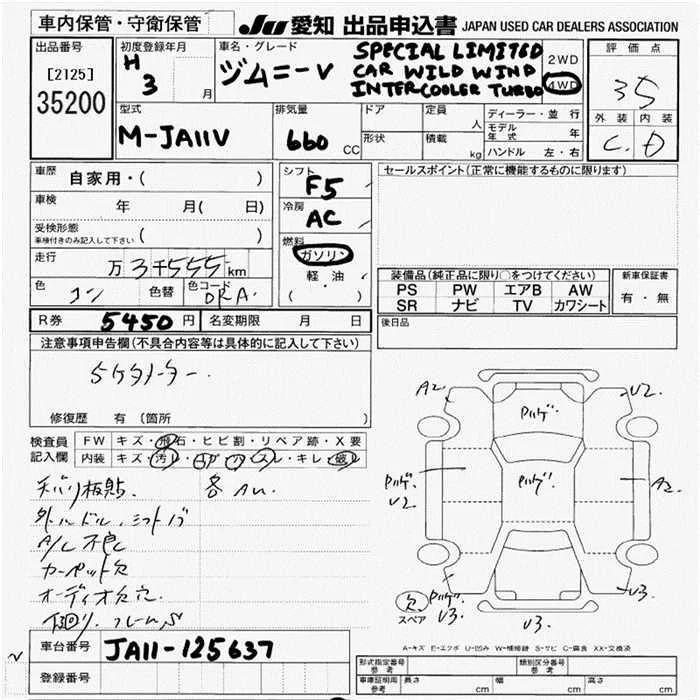 車内保管・守衛保管
JU 愛知 出品申込書 JAPAN USED CAR DEALERS ASSOCIATION
出品番号
[2125]
35200
初度登録年月
H
3
月
車名・グレード
ジムニーV
SPECIAL LIMITED
CAR WILD WIND
INTERCOOLER TURBO
2WD
4WD
評価点
35
外装 内装
C D
型式
M-JA11V
排気量
660 CC
ドア
定員
人
形状
積載
kg
ディーラー・並行
モデル年式 年
ハンドル 左・右
車歴
自家用・( )
車検
年 月( 日)
受検形態
車検付きのみ記入して下さい ( )
走行
万 3千555 km
色
コン
色替
色コード
DRA
シフト
F5
冷房
AC
燃料
ガソリン
軽・油
( ・ )
セールスポイント(正常に機能するものに限ります)
装備品(純正品に限り○をつけてください)
PS PW エアB AW
SR ナビ TV カワシート
新車保証書
有・無
後日品
R券 5450 円 名変期限 月 日
注意事項申告欄(不具合内容等は具体的に記入して下さい)
5ケタメーター
修復歴 有 (箇所 )
検査員
記入欄
FW キズ・飛石・ヒビ割・リペア跡・X要
内装 キズ・汚レ・コゲ・穴・スレ・キレ・破レ
板貼
各AU
外ハンドル、シフトノブ
A/C不良
カーペット欠
オーディオ欠穴
下回り、フレームS
車台番号 JA11-125637
登録番号
A2
V2
ハゲ
V2
A2
V3
V3
V3
欠
スペア
A-キズ E-エクボ U-凹み W-補修跡 S-サビ C-腐食 XX-交換済
形式指定番号
参考
類別区分番号
参考
車庫証明用
参考
長さ cm 幅 cm 高さ cm